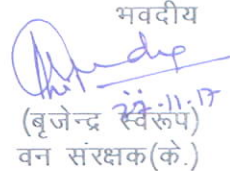 भवदीय
22.11.17
(बृजेन्द्र स्वरूप)
वन संरक्षक(के.)